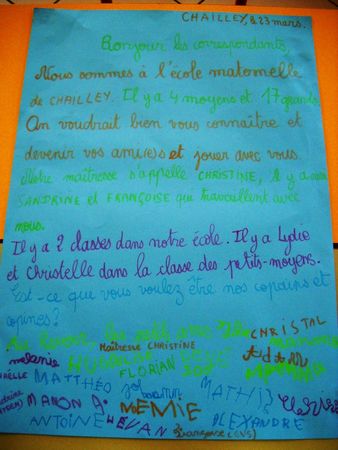 CHAILLEY, le 23 mars.
Bonjour les correspondants,
Nous sommes à l'école maternelle
de CHAILLEY. Il y a 4 moyens et 17 grands.
On voudrait bien vous connaître et
devenir vos ami(e)s et jouer avec vous.
Notre maîtresse s'appelle CHRISTINE, il y a aussi
SANDRINE et FRANÇOISE qui travaillent avec
nous.
Il y a 2 classes dans notre école. Il y a Lydie
et Christelle dans la classe des petits-moyens.
Est-ce que vous voulez être nos copains et
copines?
Au revoir, les
Maîtresse CHRISTINE CHRISTAL
FLORIAN
MATTHÉO MATHIS
MANON G. NOEMIE
ANTOINE EVAN ALEXANDRE